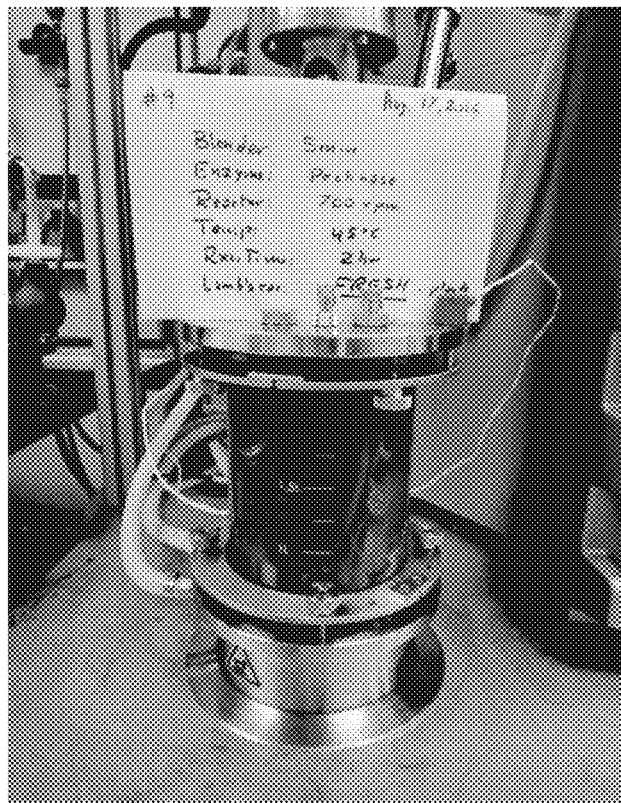 #9
Aug. 17, 2016
Blender: 5 min
Enzyme: Protease
Reactor: 700 rpm
Temp: 45°C
Rxn Time: 2hr
FRESH